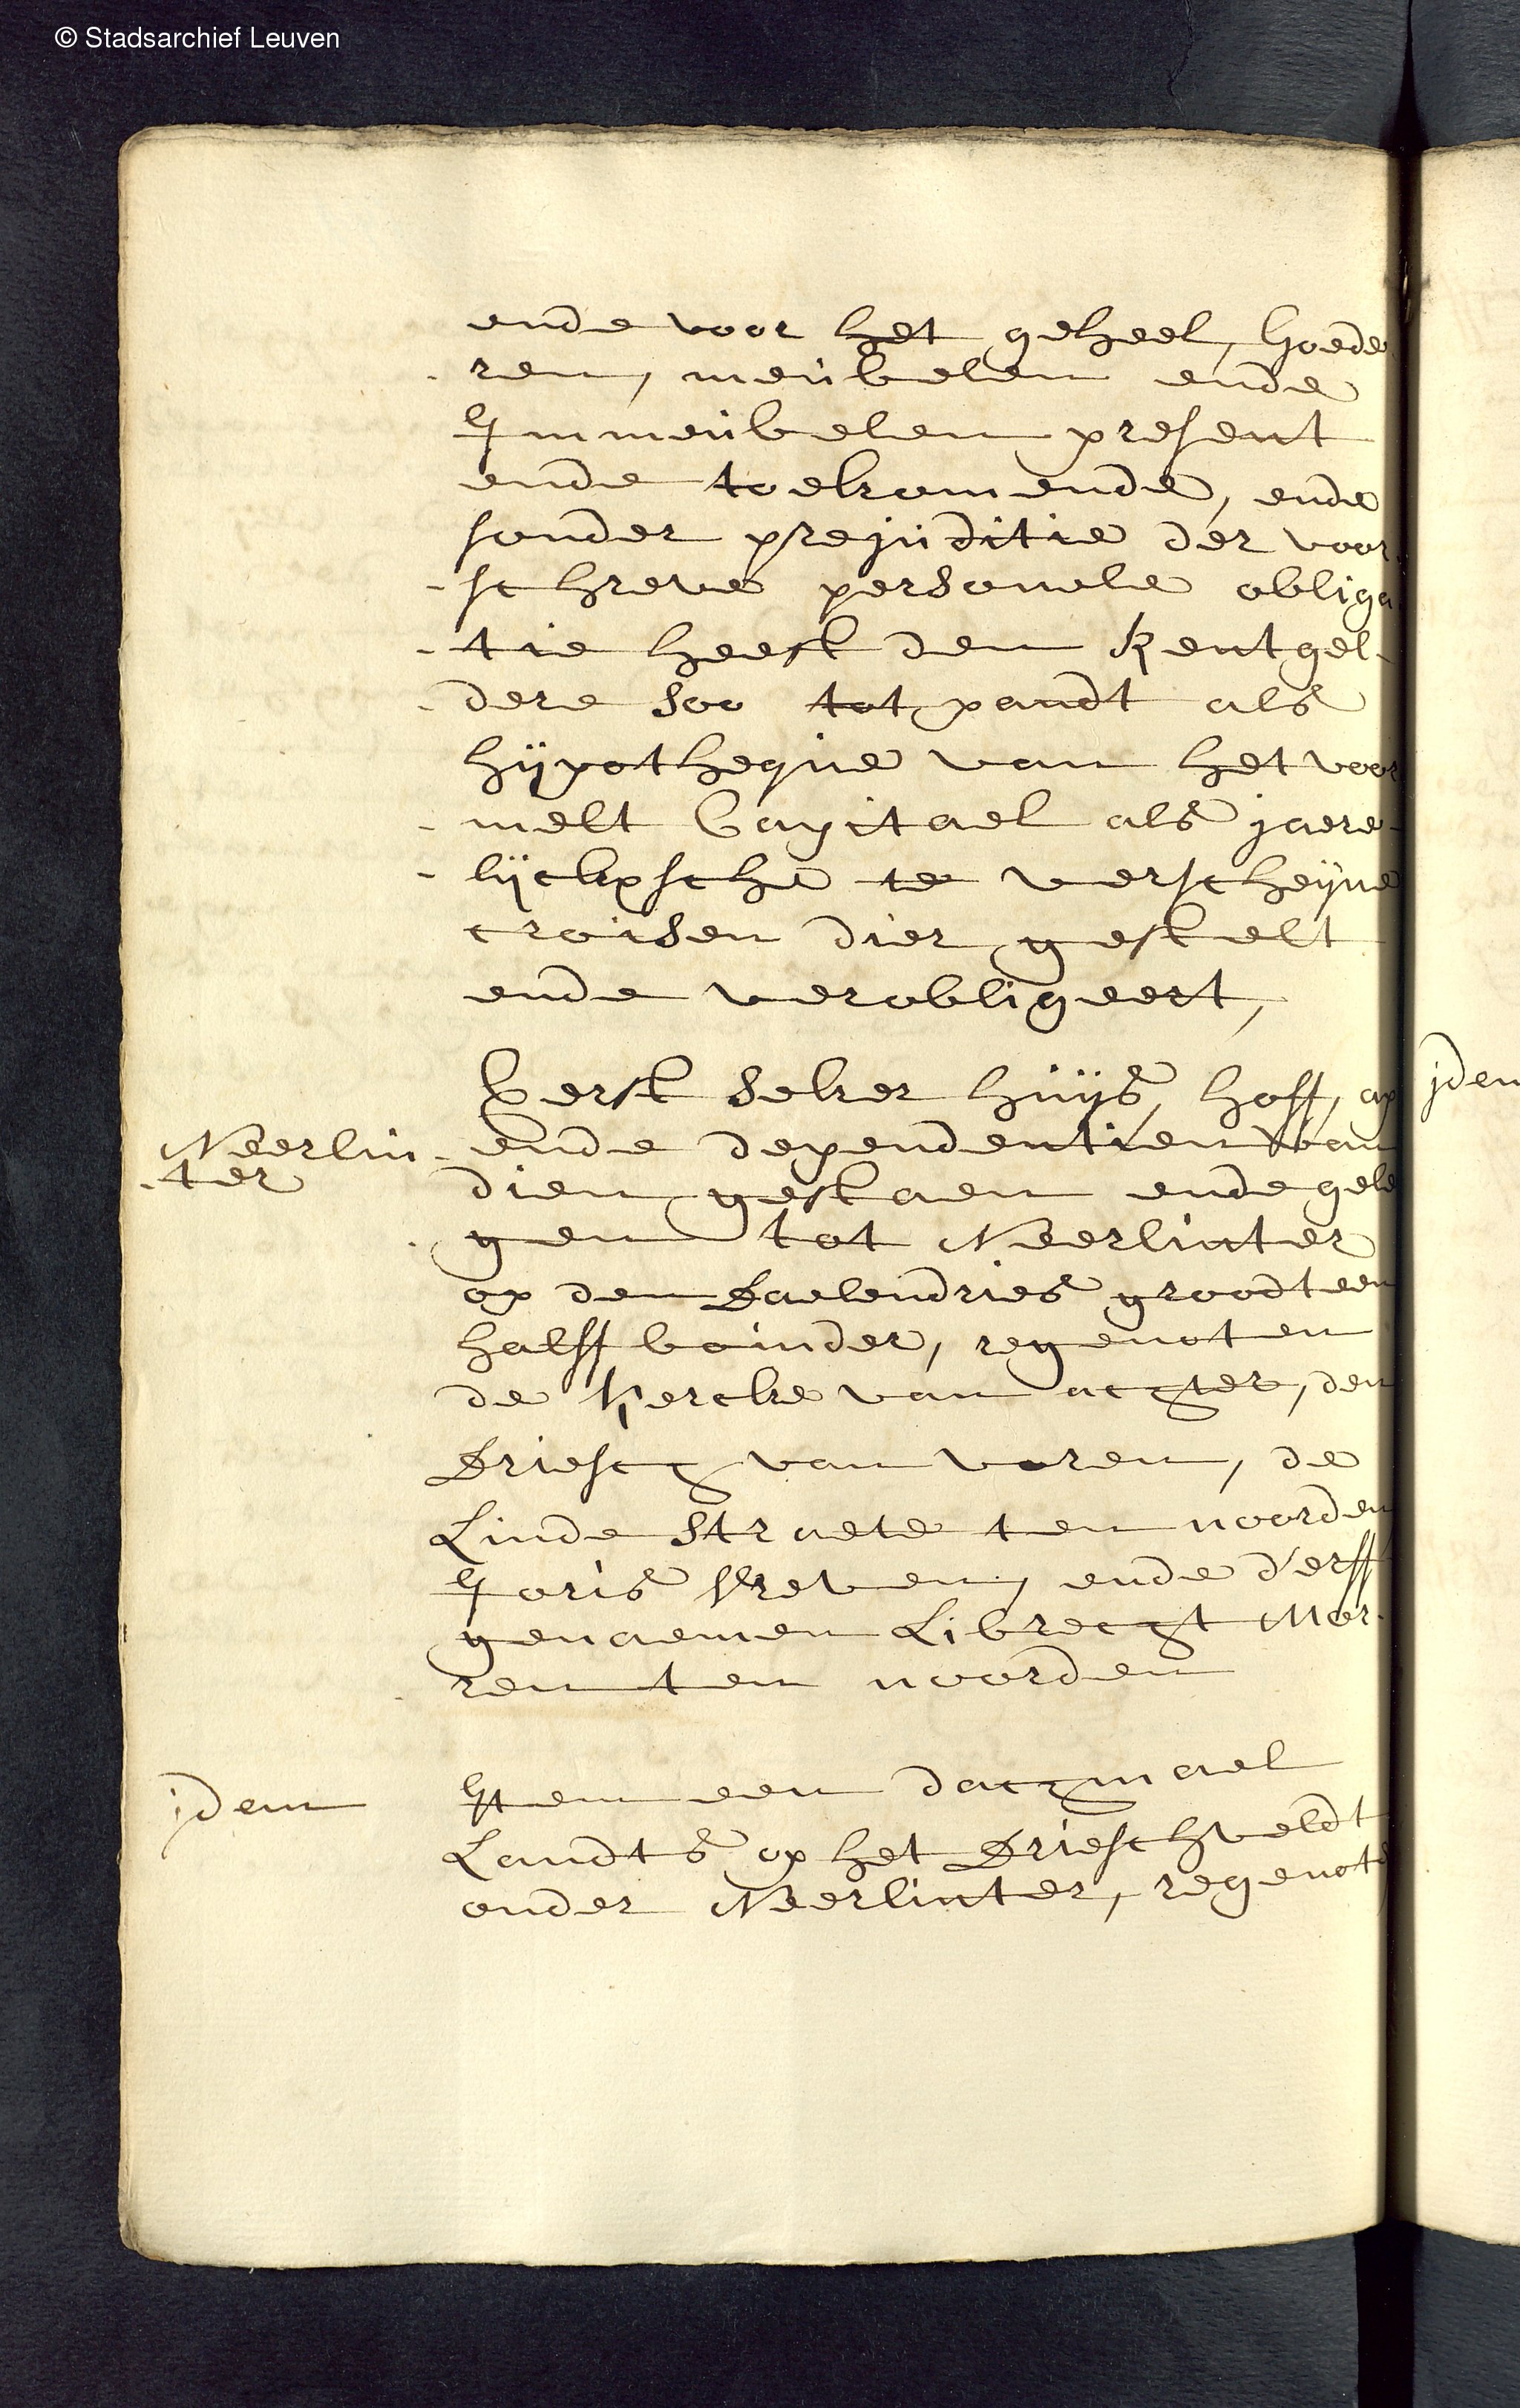 © Stadsarchief Leuven
ende voor het geheel, Goede
-ren, meúbelen ende
Immeúbelen present
ende toekomende, ende
sonder prejúditie der voor
-schreve personele obliga
-tie heeft den Rentgel-
-dere soo tot pandt als
hÿpotheqúe van het voor
-melt Capitael als jaere-
-lÿckxsche te verscheÿne
croisen dier gestelt
ende verobligeert,
Eerst seker húÿs, hoff, ap
ende dependentien van
dien gestaen ende gele
-gen tot Neerlinter
op den Daelendries groodt een
halff boinder, regenoten
de Kercke van acgter, den
Driescg van voren, de
Linde straete ten noorden
Joris Vreven, ende d'erff
genaemen Librecgt Mor-
-ren ten noorden
Item een dacgmael
Landts op het Drieschveldt
onder Neerlinter, regenote
Neerlin-
-ter
idem
jdem